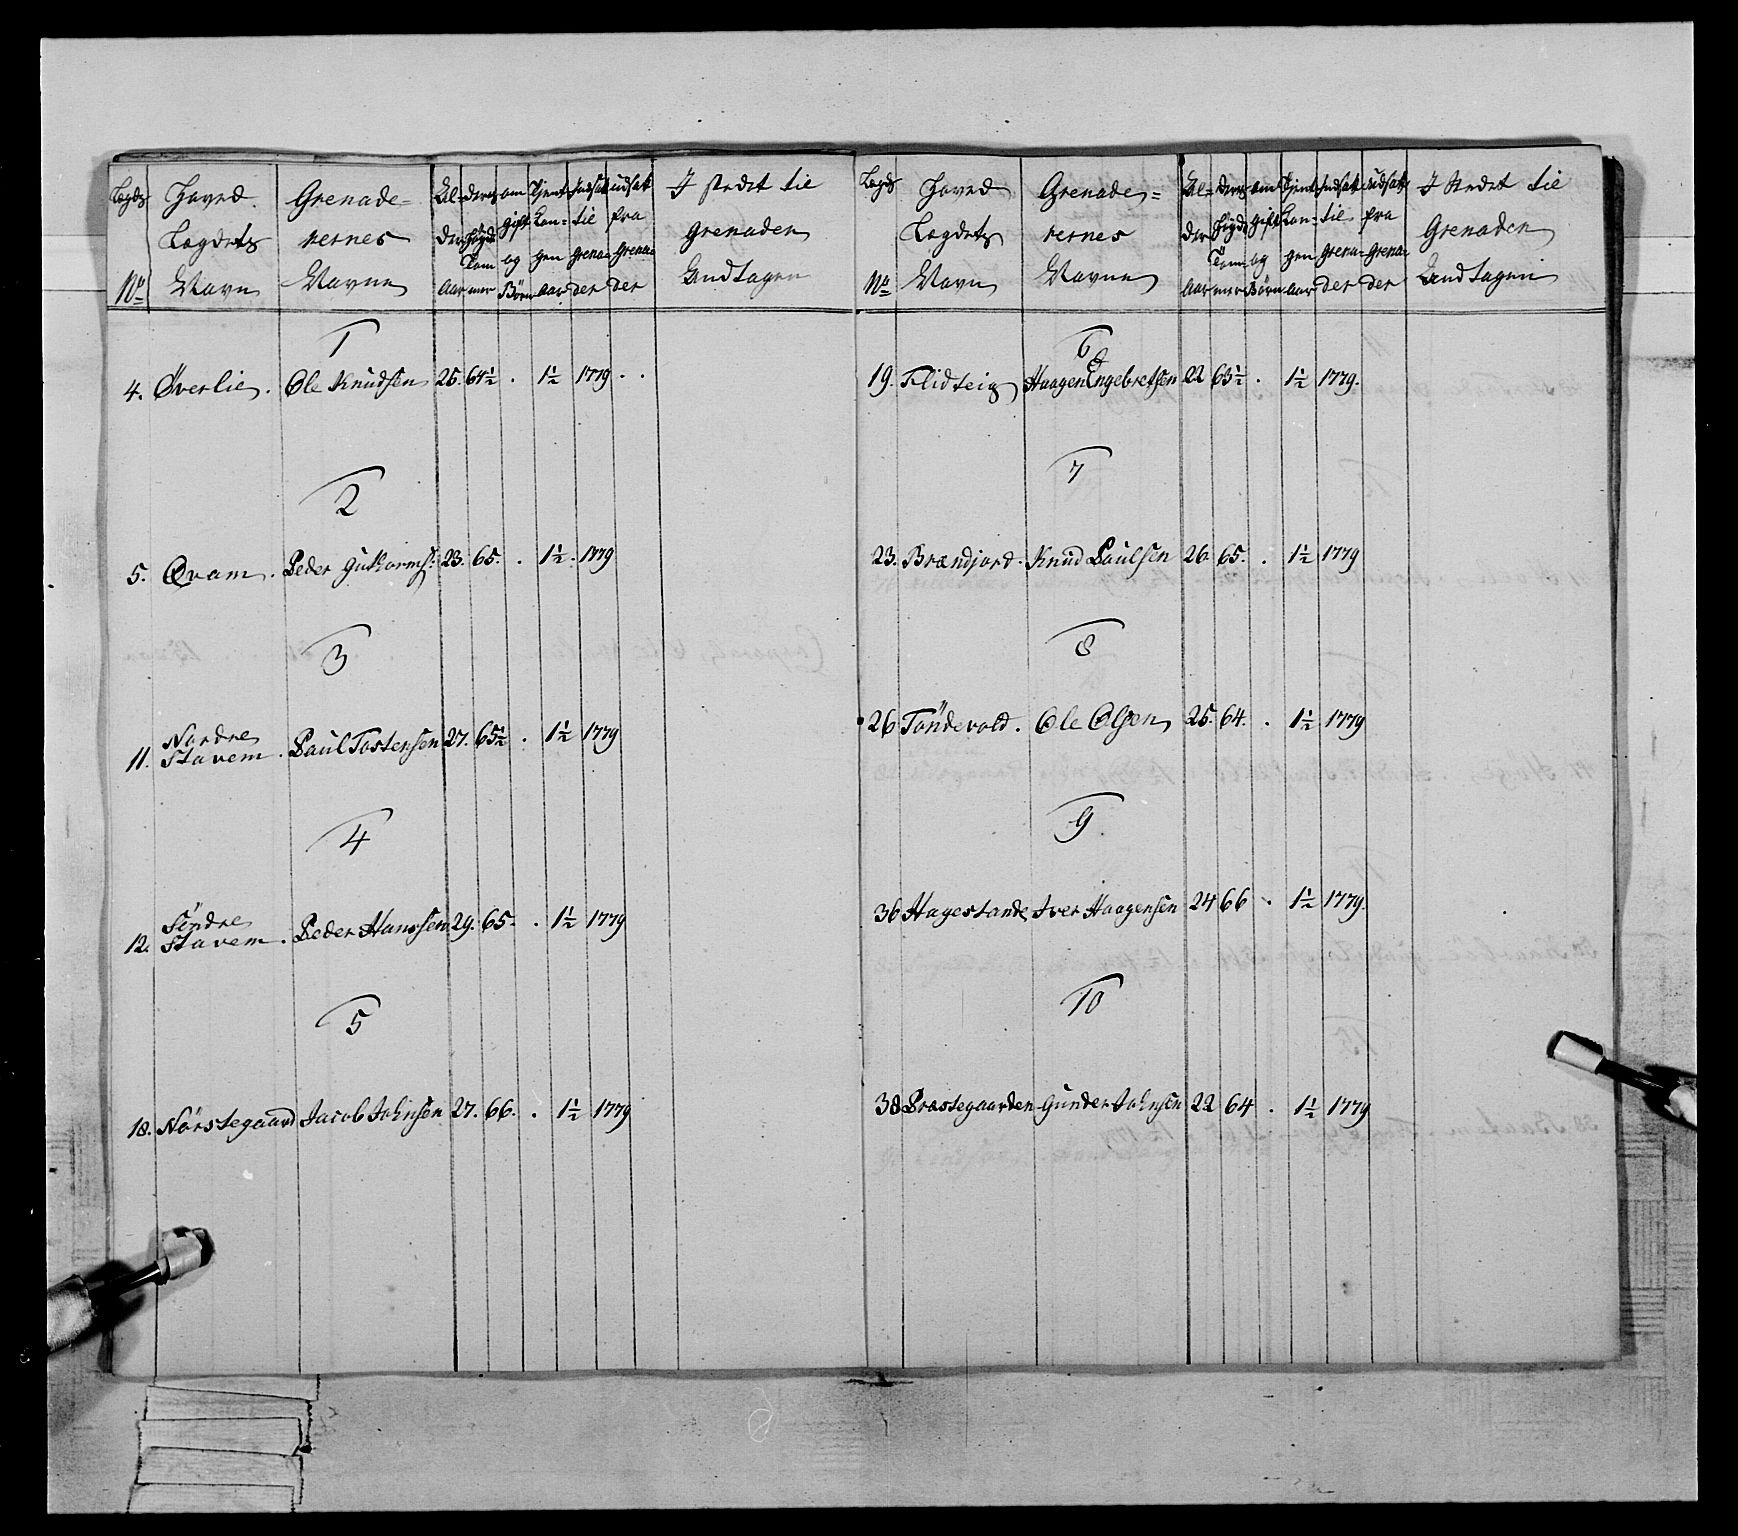 Legds No Hoved Legdets Navn Grenade= rernes Navne Al= der Aar deres Høyde Tom mer om gift og Børn Tient Kon= gen Aar Indsat til Grena= der udsat fra Grena= der I stedet til Grenader Andtagen
1
4. Øverlie. Ole Knudsen 25. 64½ . 1½ 1779 . .
2
5. Qvam. Peder Guttormss: 23. 65. . 1½. 1779
3
11. Nordre Stavem. Paul Tostensen 27. 65½ . 1½ 1779
4
12. Söndre Stavem. Peder Hanssen 29. 65. . 1½ 1779
5
18. Nörstegaard Jacob Johnsen. 27. 66. . 1½ 1779
Legds No Hoved Legdets Navn Grenade= rernes Navne Al= der Aar deres Høyde Tom= mer om Gift og Børn Tient Kon= gen Aar Indsat til Grena= der Udsat fra Grena= der I Stedet til Grenader Andtagen
6
19. Flidteig Haagen Engebretsen 22 63½ . 1½ 1779.
7
23. Brændjord. Knud Paulsen 26. 65. . 1½ 1779
8
26 Töndevold. Ole Olsen 25. 64. . 1½ 1779
9
36 Hagestande Iver Haagensen 24 66 . 1½ 1779.
10
38 Præstegaarden Gunder Johnsen 22 64 . 1½ 1779